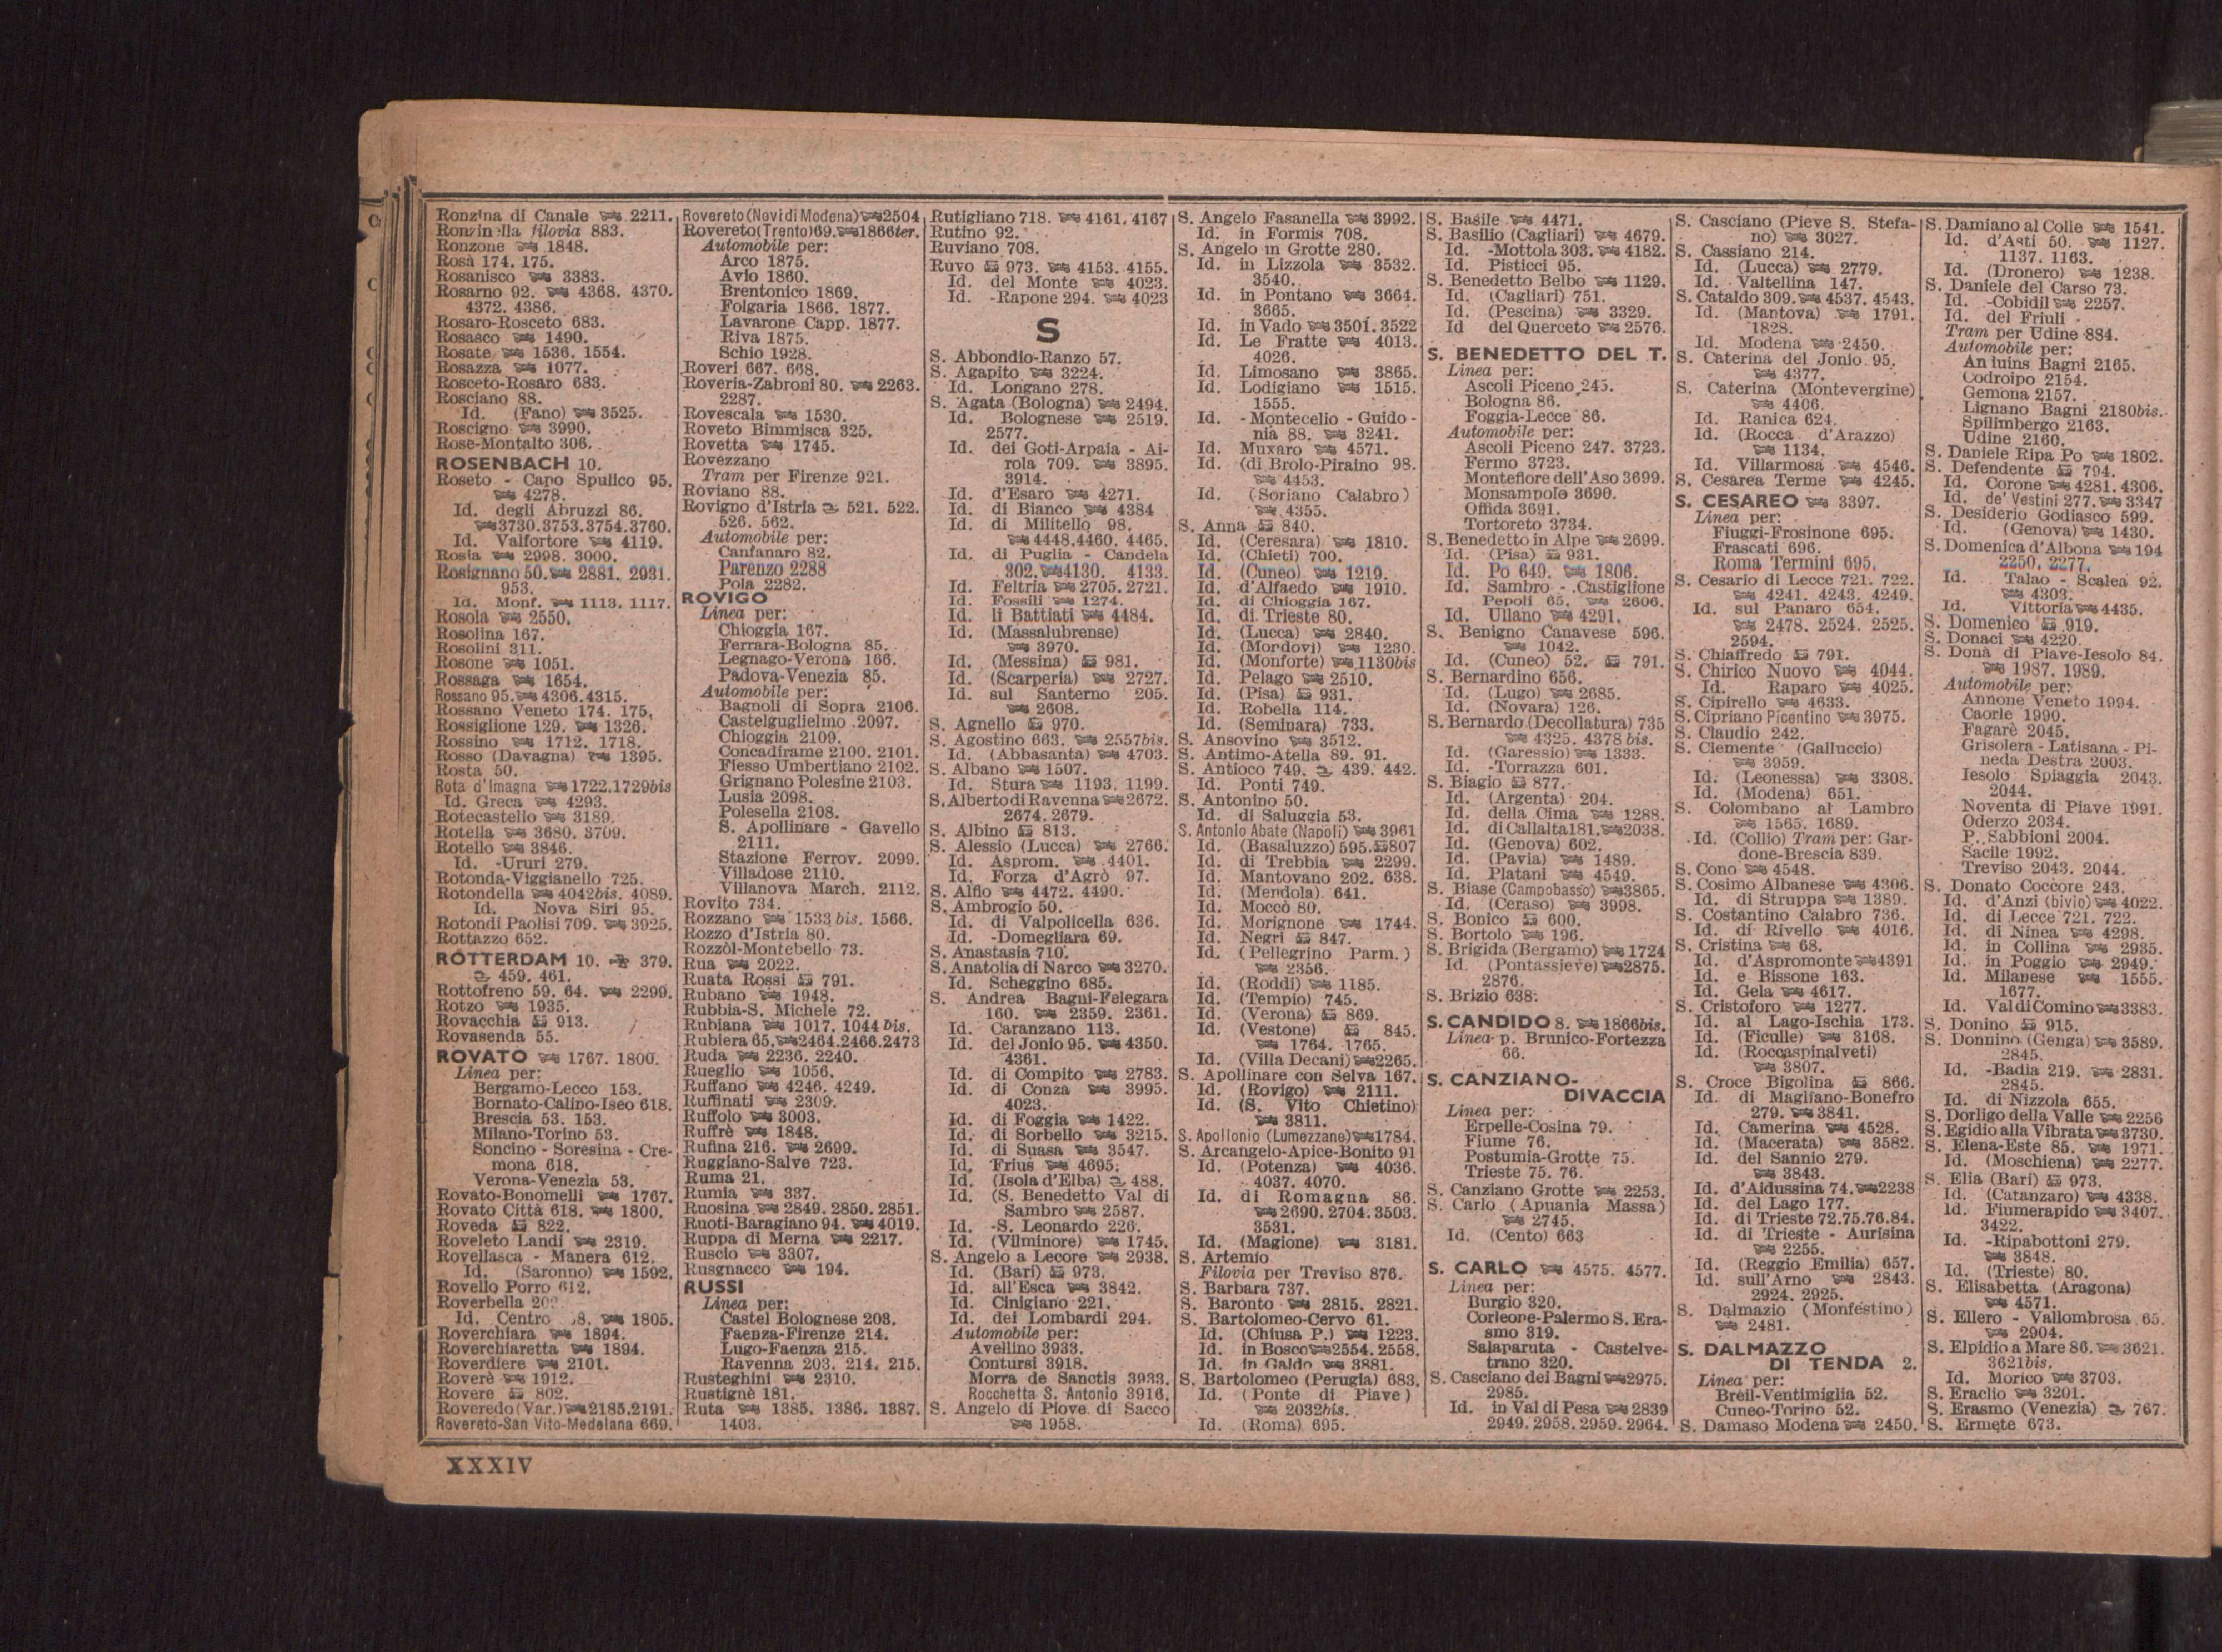 Ronzina di Canale 2211.
Ronzinella filovia 883.
Ronzone 1848.
Rosà 174. 175.
Rosanisco 3383.
Rosarno 92. 4368. 4370.
4372. 4386.
Rosaro-Rosceto 683.
Rosasco 1490.
Rosate 1536. 1554.
Rosazza 1077.
Rosceto-Rosaro 683.
Rosciano 88.
Id. (Fano) 3525.
Roscigno 3990.
Rose-Montalto 306.
ROSENBACH 10.
Roseto - Capo Spulico 95.
4278.
Id. degli Abruzzi 86.
3730.3753.3754.3760.
Id. Valfortore 4119.
Rosia 2998. 3000.
Rosignano 50. 2881. 2931.
953.
Id. Monf. 1113. 1117.
Rosola 2550.
Rosolina 167.
Rosolini 311.
Rosone 1051.
Rossaga 1654.
Rossano 95. 4306.4315.
Rossano Veneto 174. 175.
Rossiglione 129. 1326.
Rossino 1712. 1718.
Rosso (Davagna) 1395.
Rosta 50.
Rota d'Imagna 1722.1729bis
Id. Greca 4293.
Rotecastello 3189.
Rotella 3680. 3709.
Rotello 3846.
Id. -Ururi 279.
Rotonda-Viggianello 725.
Rotondella 4042bis. 4089.
Id. Nova Siri 95.
Rotondi Paolisi 709. 3925.
Rottazzo 652.
ROTTERDAM 10. 379.
459. 461.
Rottofreno 59. 64. 2299.
Rotzo 1935.
Rovacchia 913.
Rovasenda 55.
ROVATO 1767. 1800.
Linea per:
Bergamo-Lecco 153.
Bornato-Calino-Iseo 618.
Brescia 53. 153.
Milano-Torino 53.
Soncino - Soresina - Cre-
mona 618.
Verona-Venezia 53.
Rovato-Bonomelli 1767.
Rovato Città 618. 1800.
Roveda 822.
Roveleto Landi 2319.
Rovellasca - Manera 612.
Id. (Saronno) 1592.
Rovello Porro 612.
Roverbella
Id. Centro 1805.
Roverchiara 1894.
Roverchiaretta 1894.
Roverdiere 2101.
Roverè 1912.
Rovere 802.
Roveredo (Var.) 2185.2191.
Rovereto-San Vito-Medelana 669.
Rovereto (Novi di Modena) 2504
Rovereto (Trento) 69. 1866ter.
Automobile per:
Arco 1875.
Avio 1860.
Brentonico 1869.
Folgaria 1866. 1877.
Lavarone Capp. 1877.
Riva 1875.
Schio 1928.
Roveri 667. 668.
Roveria-Zabroni 80. 2263.
2287.
Rovescala 1530.
Roveto Bimmisca 325.
Rovetta 1745.
Rovezzano
Tram per Firenze 921.
Roviano 88.
Rovigno d'Istria 521. 522.
526. 562.
Automobile per:
Canfanaro 82.
Parenzo 2288
Pola 2282.
ROVIGO
Linea per:
Chioggia 167.
Ferrara-Bologna 85.
Legnago-Verona 166.
Padova-Venezia 85.
Automobile per:
Bagnoli di Sopra 2106.
Castelguglielmo 2097.
Chioggia 2109.
Concadirame 2100. 2101.
Fiesso Umbertiano 2102.
Grignano Polesine 2103.
Lusia 2098.
Polesella 2108.
S. Apollinare - Gavello
2111.
Stazione Ferrov. 2099.
Villadose 2110.
Villanova March. 2112.
Rovito 734.
Rozzano 1533 bis. 1566.
Rozzo d'Istria 80.
Rozzòl-Montebello 73.
Rua 2022.
Ruata Rossi 791.
Rubano 1948.
Rubbia-S. Michele 72.
Rubiana 1017. 1044 bis.
Rubiera 65. 2464.2466.2473
Ruda 2236. 2240.
Rueglio 1056.
Ruffano 4246. 4249.
Ruffinati 2309.
Ruffolo 3003.
Ruffrè 1848.
Rufina 216. 2699.
Ruggiano-Salve 723.
Ruma 21.
Rumia 337.
Ruosina 2849. 2850. 2851.
Ruoti-Baragiano 94. 4019.
Ruppa di Merna 2217.
Ruscio 3307.
Rusgnacco 194.
RUSSI
Linea per:
Castel Bolognese 203.
Faenza-Firenze 214.
Lugo-Faenza 215.
Ravenna 203. 214. 215.
Rusteghini 2310.
Rustignè 181.
Ruta 1385. 1386. 1387.
1403.
Rutigliano 718. 4161. 4167
Rutino 92.
Ruviano 708.
Ruvo 973. 4153. 4155.
Id. del Monte 4023.
Id. -Rapone 294. 4023
S
S. Abbondio-Ranzo 57.
S. Agapito 3224.
Id. Longano 278.
S. Agata (Bologna) 2494.
Id. Bolognese 2519.
2577.
Id. dei Goti-Arpaia - Ai-
rola 709. 3895.
3914.
Id. d'Esaro 4271.
Id. di Bianco 4384
Id. di Militello 98.
4448.4460. 4465.
Id. di Puglia - Candela
302. 4130. 4133.
Id. Feltria 2705. 2721.
Id. Fossili 1274.
Id. li Battiati 4484.
Id. (Massalubrense)
3970.
Id. (Messina) 981.
Id. (Scarperia) 2727.
Id. sul Santerno 205.
2608.
S. Agnello 970.
S. Agostino 663. 2557bis.
Id. (Abbasanta) 4703.
S. Albano 1507.
Id. Stura 1193. 1199.
S. Alberto di Ravenna 2672.
2674. 2679.
S. Albino 813.
S. Alessio (Lucca) 2766.
Id. Asprom. 4401.
Id. Forza d'Agrò 97.
S. Alfio 4472. 4490.
S. Ambrogio 50.
Id. di Valpolicella 636.
Id. -Domegliara 69.
S. Anastasia 710.
S. Anatolia di Narco 3270.
Id. Scheggino 685.
S. Andrea Bagni-Felegara
160. 2359. 2361.
Id. Caranzano 113.
Id. del Jonio 95. 4350.
4361.
Id. di Compito 2783.
Id. di Conza 3995.
4023.
Id. di Foggia 1422.
Id. di Sorbello 3215.
Id. di Suasa 3547.
Id. Frius 4695.
Id. (Isola d'Elba) 488.
Id. (S. Benedetto Val di
Sambro 2587.
Id. -S. Leonardo 226.
Id. (Vilminore) 1745.
S. Angelo a Lecore 2938.
Id. (Bari) 973.
Id. all'Esca 3842.
Id. Cinigiano 221.
Id. dei Lombardi 294.
Automobile per:
Avellino 3933.
Contursi 3918.
Morra de Sanctis 3933.
Rocchetta S. Antonio 3916.
S. Angelo di Piove di Sacco
1958.
S. Angelo Fasanella 3992.
Id. in Formis 708.
S. Angelo in Grotte 280.
Id. in Lizzola 3532.
3540.
Id. in Pontano 3664.
3665.
Id. in Vado 3501. 3522
Id. Le Fratte 4013.
4026.
Id. Limosano 3865.
Id. Lodigiano 1515.
1555.
Id. - Montecelio - Guido -
nia 88. 3241.
Id. Muxaro 4571.
Id. (di Brolo-Piraino 98.
4453.
Id. (Soriano Calabro)
4355.
S. Anna 840.
Id. (Ceresara) 1810.
Id. (Chieti) 700.
Id. (Cuneo) 1219.
Id. d'Alfaedo 1910.
Id. di Chioggia 167.
Id. di Trieste 80.
Id. (Lucca) 2840.
Id. (Mordovì) 1230.
Id. (Monforte) 1130bis
Id. Pelago 2510.
Id. (Pisa) 931.
Id. Robella 114.
Id. (Seminara) 733.
S. Ansovino 3512.
S. Antimo-Atella 89. 91.
S. Antioco 749. 439. 442.
Id. Ponti 749.
S. Antonino 50.
Id. di Saluggia 53.
S. Antonio Abate (Napoli) 3961
Id. (Basaluzzo) 595. 807
Id. di Trebbia 2299.
Id. Mantovano 202. 638.
Id. (Mendola) 641.
Id. Moccò 80.
Id. Morignone 1744.
Id. Negri 847.
Id. (Pellegrino Parm.)
2356.
Id. (Roddi) 1185.
Id. (Tempio) 745.
Id. (Verona) 869.
Id. (Vestone) 845.
1764. 1765.
Id. (Villa Decani) 2265.
S. Apollinare con Selva 167.
Id. (Rovigo) 2111.
Id. (S. Vito Chietino)
3811.
S. Apollonio (Lumezzane) 1784.
S. Arcangelo-Apice-Bonito 91
Id. (Potenza) 4036.
4037. 4070.
Id. di Romagna 86.
2690. 2704. 3503.
3531.
Id. (Magione) 3181.
S. Artemio
Filovia per Treviso 876.
S. Barbara 737.
S. Baronto 2815. 2821.
S. Bartolomeo-Cervo 61.
Id. (Chiusa P.) 1223.
Id. in Bosco 2554. 2558.
Id. in Galdo 3881.
S. Bartolomeo (Perugia) 683.
Id. (Ponte di Piave)
2032bis.
Id. (Roma) 695.
S. Basile 4471.
S. Basilio (Cagliari) 4679.
Id. -Mottola 303. 4182.
Id. Pisticci 95.
S. Benedetto Belbo 1129.
Id. (Cagliari) 751.
Id. (Pescina) 3329.
Id del Querceto 2576.
S. BENEDETTO DEL T.
Linea per:
Ascoli Piceno 245.
Bologna 86.
Foggia-Lecce 86.
Automobile per:
Ascoli Piceno 247. 3723.
Fermo 3723.
Montefiore dell'Aso 3699.
Monsampolo 3690.
Offida 3691.
Tortoreto 3734.
S. Benedetto in Alpe 2699.
Id. (Pisa) 931.
Id. Po 649. 1806.
Id. Sambro - Castiglione
Pepoli 65. 2606.
Id. Ullano 4291.
S. Benigno Canavese 596.
1042.
Id. (Cuneo) 52. 791.
S. Bernardino 656.
Id. (Lugo) 2685.
Id. (Novara) 126.
S. Bernardo (Decollatura) 735
4325. 4378 bis.
Id. (Garessio) 1333.
Id. -Torrazza 601.
S. Biagio 877.
Id. (Argenta) 204.
Id. della Cima 1288.
Id. di Callalta 181. 2038.
Id. (Genova) 602.
Id. (Pavia) 1489.
Id. Platani 4549.
S. Biase (Campobasso) 3865.
Id. (Ceraso) 3998.
S. Bonico 600.
S. Bortolo 196.
S. Brigida (Bergamo) 1724
Id. (Pontassieve) 2875.
2876.
S. Brizio 638.
S. CANDIDO 8. 1866bis.
Linea p. Brunico-Fortezza
66.
S. CANZIANO-
DIVACCIA
Linea per:
Erpelle-Cosina 79.
Fiume 76.
Postumia-Grotte 75.
Trieste 75. 76.
S. Canziano Grotte 2253.
S. Carlo (Apuania Massa)
2745.
Id. (Cento) 663
S. CARLO 4575. 4577.
Linea per:
Burgio 320.
Corleone-Palermo S. Era-
smo 319.
Salaparuta - Castelve-
trano 320.
S. Casciano dei Bagni 2975.
2985.
Id. in Val di Pesa 2839
2949. 2958. 2959. 2964.
S. Casciano (Pieve S. Stefa-
no) 3027.
S. Cassiano 214.
Id. (Lucca) 2779.
Id. Valtellina 147.
S. Cataldo 309. 4537. 4543.
Id. (Mantova) 1791.
1828.
Id. Modena 2450.
S. Caterina del Jonio 95.
4377.
S. Caterina (Montevergine)
4406.
Id. Ranica 624.
Id. (Rocca d'Arazzo)
1134.
Id. Villarmosa 4546.
S. Cesarea Terme 4245.
S. CESAREO 3397.
Linea per:
Fiuggi-Frosinone 695.
Frascati 696.
Roma Termini 695.
S. Cesario di Lecce 721. 722.
4241. 4243. 4249.
Id. sul Panaro 654.
2478. 2524. 2525.
2594.
S. Chiaffredo 791.
S. Chirico Nuovo 4044.
Id. Raparo 4025.
S. Cipirello 4633.
S. Cipriano Picentino 3975.
S. Claudio 242.
S. Clemente (Galluccio)
3959.
Id. (Leonessa) 3308.
Id. (Modena) 651.
S. Colombano al Lambro
1565. 1689.
Id. (Collio) Tram per: Gar-
done-Brescia 839.
S. Cono 4548.
S. Cosimo Albanese 4306.
Id. di Struppa 1389.
S. Costantino Calabro 736.
Id. di Rivello 4016.
S. Cristina 68.
Id. d'Aspromonte 4391
Id. e Bissone 163.
Id. Gela 4617.
S. Cristoforo 1277.
Id. al Lago-Ischia 173.
Id. (Ficulle) 3168.
Id. (Roccaspinalveti)
3807.
S. Croce Bigolina 866.
Id. di Magliano-Bonefro
279. 3841.
Id. Camerina 4528.
Id. (Macerata) 3582.
Id. del Sannio 279.
3843.
Id. d'Aidussina 74. 2238
Id. del Lago 177.
Id. di Trieste 72.75.76.84.
Id. di Trieste - Aurisina
2255.
Id. (Reggio Emilia) 657.
Id. sull'Arno 2843.
2924. 2925.
S. Dalmazio (Monfestino)
2481.
S. DALMAZZO
DI TENDA 2.
Linea per:
Breil-Ventimiglia 52.
Cuneo-Torino 52.
S. Damaso Modena 2450.
S. Damiano al Colle 1541.
Id. d'Asti 50. 1127.
1137. 1163.
Id. (Dronero) 1238.
S. Daniele del Carso 73.
Id. -Cobidil 2257.
Id. del Friuli
Tram per Udine 884.
Automobile per:
An luins Bagni 2165.
Codroipo 2154.
Gemona 2157.
Lignano Bagni 2180bis.
Spilimbergo 2163.
Udine 2160.
S. Daniele Ripa Po 1802.
S. Defendente 794.
Id. Corone 4281. 4306.
Id. de' Vestini 277. 3347
S. Desiderio Godiasco 599.
Id. (Genova) 1430.
S. Domenica d'Albona 194
2250. 2277.
Id. Talao - Scalea 92.
4303.
Id. Vittoria 4435.
S. Domenico 919.
S. Donaci 4220.
S. Donà di Piave-Iesolo 84.
1987. 1989.
Automobile per:
Annone Veneto 1994.
Caorle 1990.
Fagarè 2045.
Grisolera - Latisana - Pi-
neda Destra 2003.
Iesolo Spiaggia 2043.
2044.
Noventa di Piave 1991.
Oderzo 2034.
P. Sabbioni 2004.
Sacile 1992.
Treviso 2043. 2044.
S. Donato Coccore 243.
Id. d'Anzi (bivio) 4022.
Id. di Lecce 721. 722.
Id. di Ninea 4298.
Id. in Collina 2935.
Id. in Poggio 2949.
Id. Milanese 1555.
1677.
Id. Val di Comino 3383.
S. Donino 915.
S. Donnino (Genga) 3589.
2845.
Id. -Badia 219. 2831.
2845.
Id. di Nizzola 655.
S. Dorligo della Valle 2256
S. Egidio alla Vibrata 3730.
S. Elena-Este 85. 1971.
Id. (Moschiena) 2277.
S. Elia (Bari) 973.
Id. (Catanzaro) 4338.
Id. Fiumerapido 3407.
3422.
Id. -Ripabottoni 279.
3848.
Id. (Trieste) 80.
S. Elisabetta (Aragona)
4571.
S. Ellero - Vallombrosa 65.
2904.
S. Elpidio a Mare 86. 3621.
3621bis.
Id. Morico 3703.
S. Eraclio 3201.
S. Erasmo (Venezia) 767.
S. Ermete 673.
XXXIV